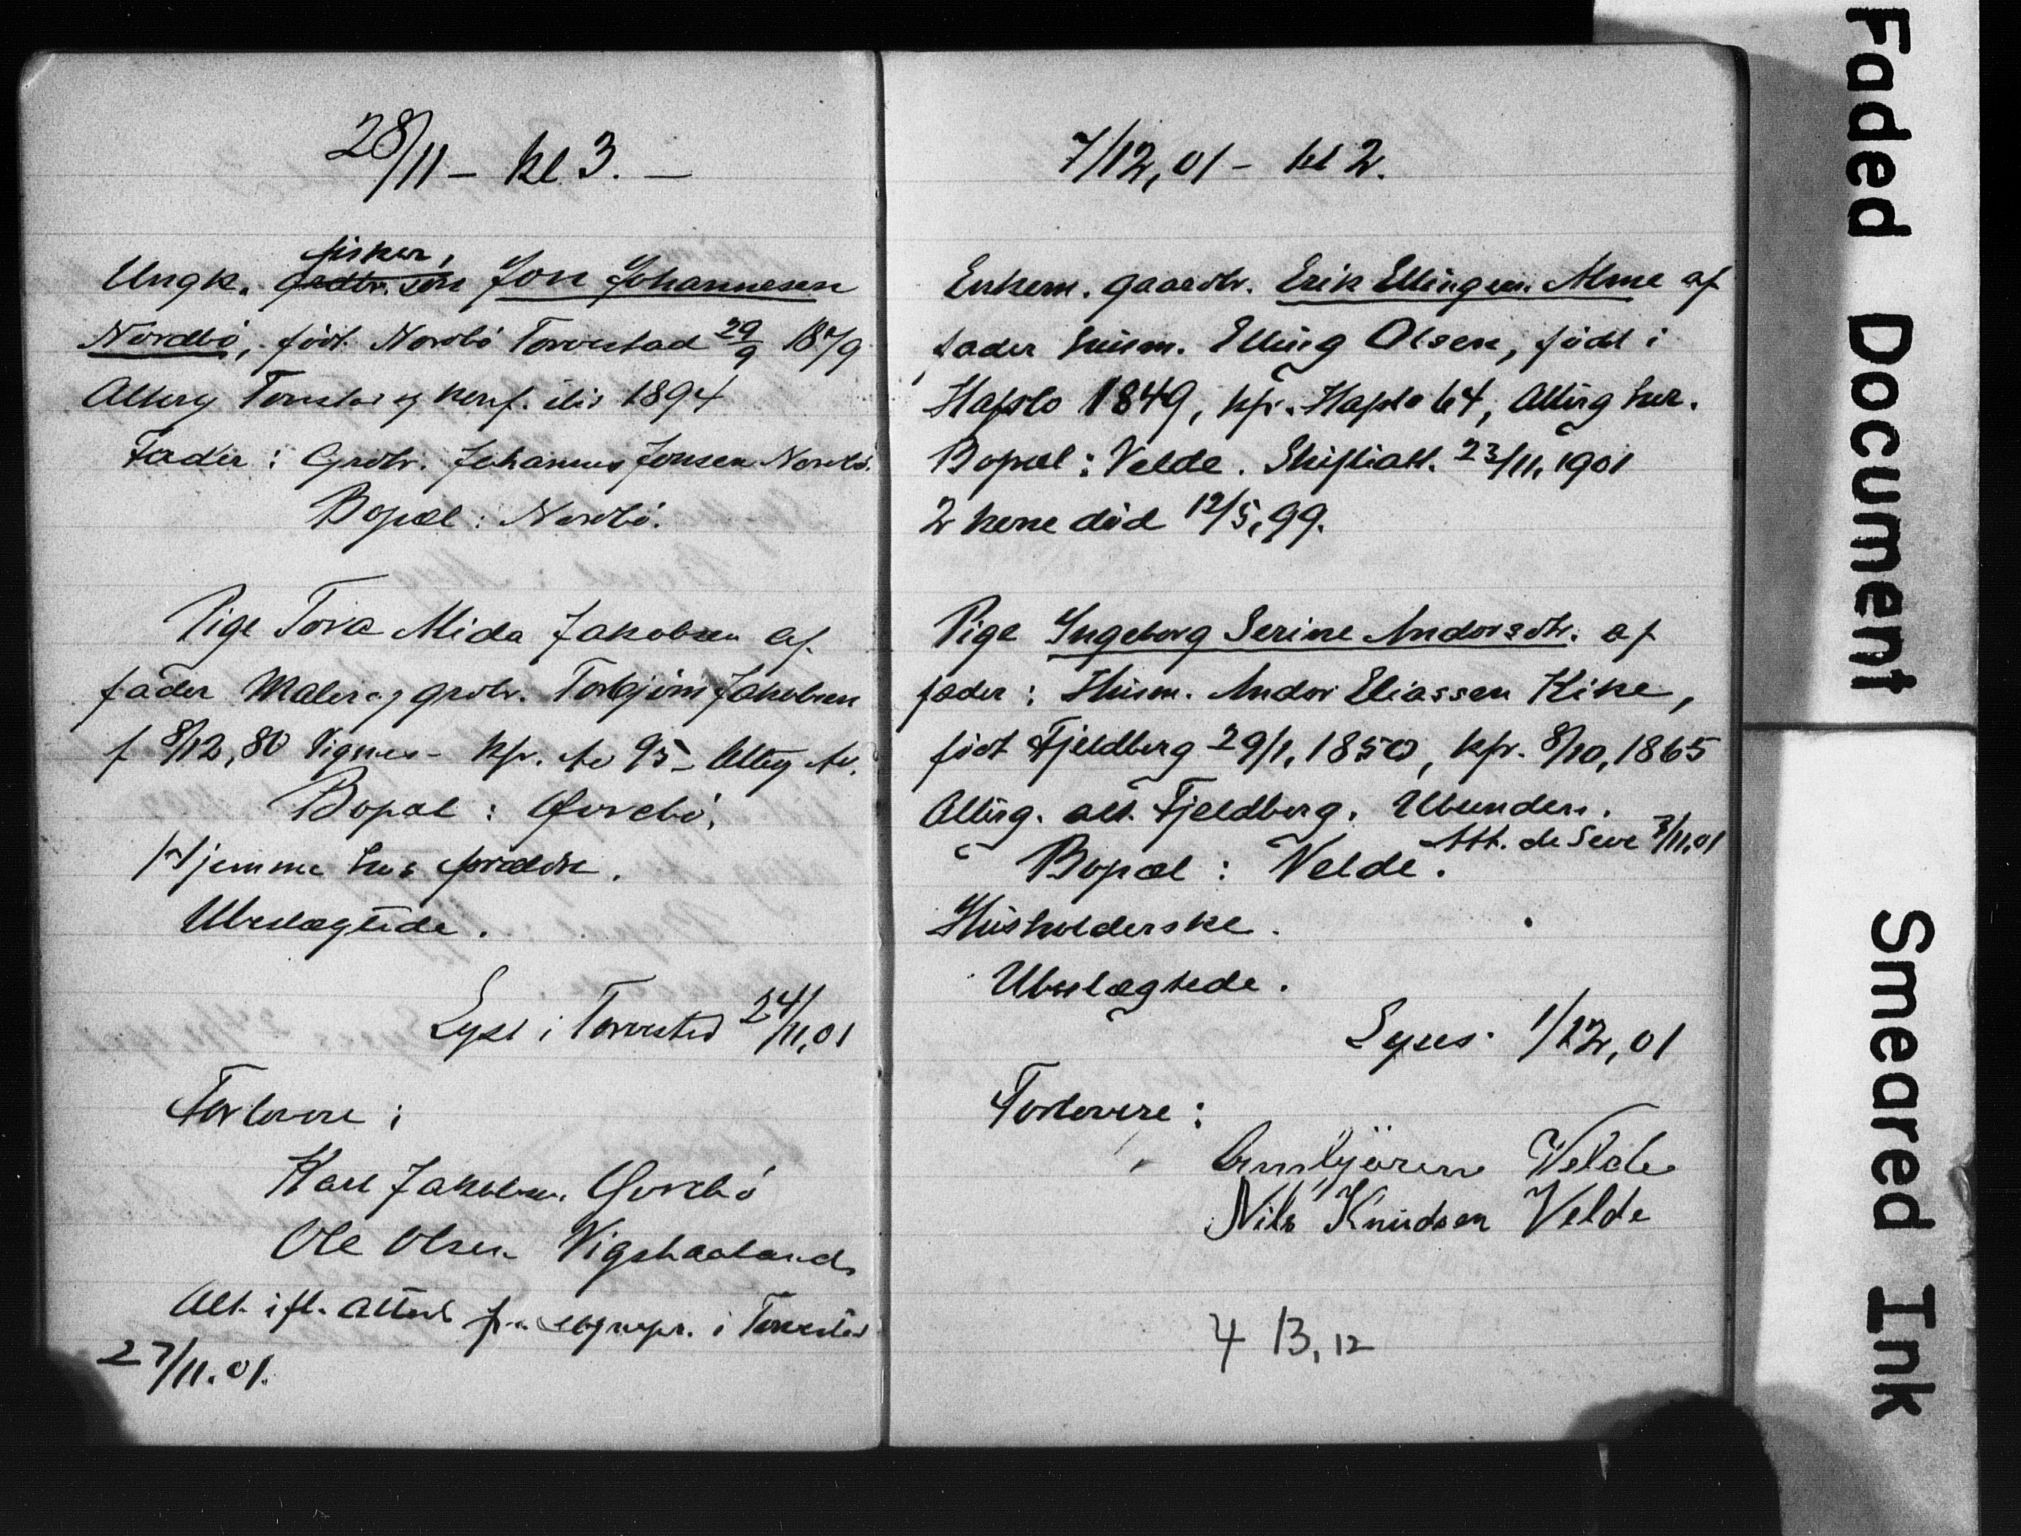 28/11 – kl 3. –
fisker,
Ungk. gaardbr. søn Jon Johannesen
Nordbö, født Nordbö Torvestad 29/9 1879
Attery Torvestad og konf. ibid 1894
Fader: Grdbr. Johannes Jonsen Nordbö.
Bopæl: Nordbö.
Pige Tora Mida Jakobsen af
fader Maler og grdbr. Torbjörn Jakobsen
f 8/12, 80 Vignes – kfr. Av 95 – Atterg Av.
Bopæl: Govebö.
Hjemme hos forældre.
Ubeslægtede.
Lyst i Torvestad 24/11, 01
Forlovere:
Karl Jakobsen Govebö
Ole Olsen Vigshaaland
Alt ifl. attest fra sognepr. i Torvestad
27/11. 01.
7/12, 01 – kl 2.
Enkem. gaardbr. Erik Ellingsen Alme af
fader husm. Elling Olsen, född i
Hafslo 1849, kfr. Hafslo 64, Atterg her.
Bopæl: Velde. Skifteatt. 23/11, 1901
2 kone död 12/5, 99.
Pige Ingeborg Serine Andorsdtr. af
fader: Husm. Andor Eliassen Kike,
född Fjeldberg 29/1, 1850, kfr. 8/10, 1865
Atterg. att. Fjeldberg. Ubunden.
Att. de 3/11, 01
Bopæl: Velde.
Husholderske.
Ubeslægtede.
Lyses 1/12, 01
Forlovere:
Velde
Nils Knudsen Velde
4 13, 12
Faded Document
Smeared Ink